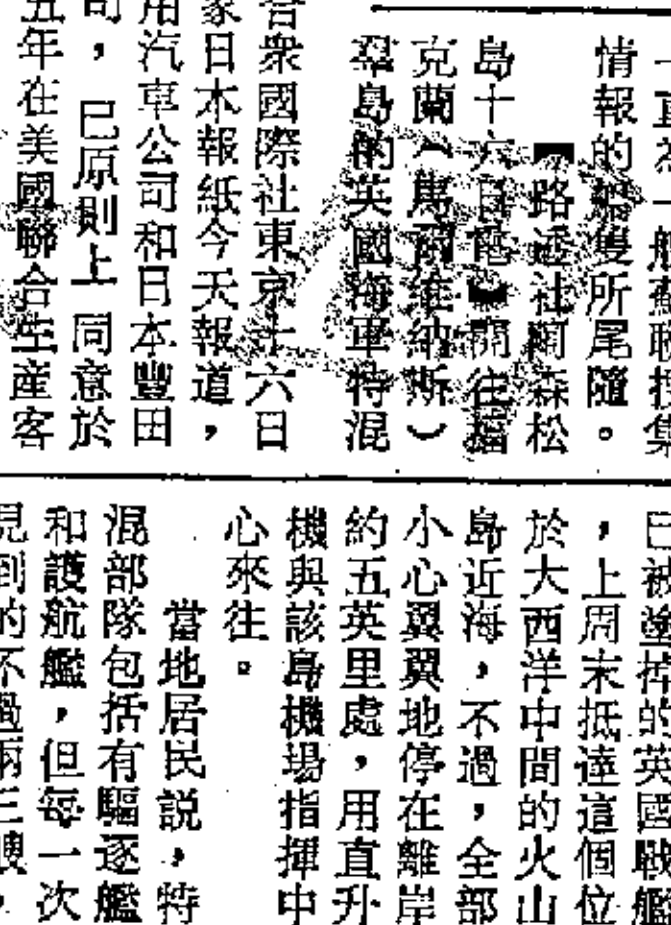 一直為一艘蘇聯搜集
情報的船隻所尾隨。
【路透社阿森松
島十六日電】開往福
克蘭(馬爾維納斯)
羣島的英國海軍特混
合衆國際社東京十六日
家日本報紙今天報道,
用汽車公司和日本豐田
司,已原則上同意於
五年在美國聯合生産客
已被塗掉的英國戰艦
,上周末抵達這個位
於大西洋中間的火山
島近海,不過,全部
小心翼翼地停在離岸
約五英里處,用直升
機與該島機場指揮中
心來往。
當地居民説,特
混部隊包括有驅逐艦
和護航艦,但每一次
見到的不過兩三艘,